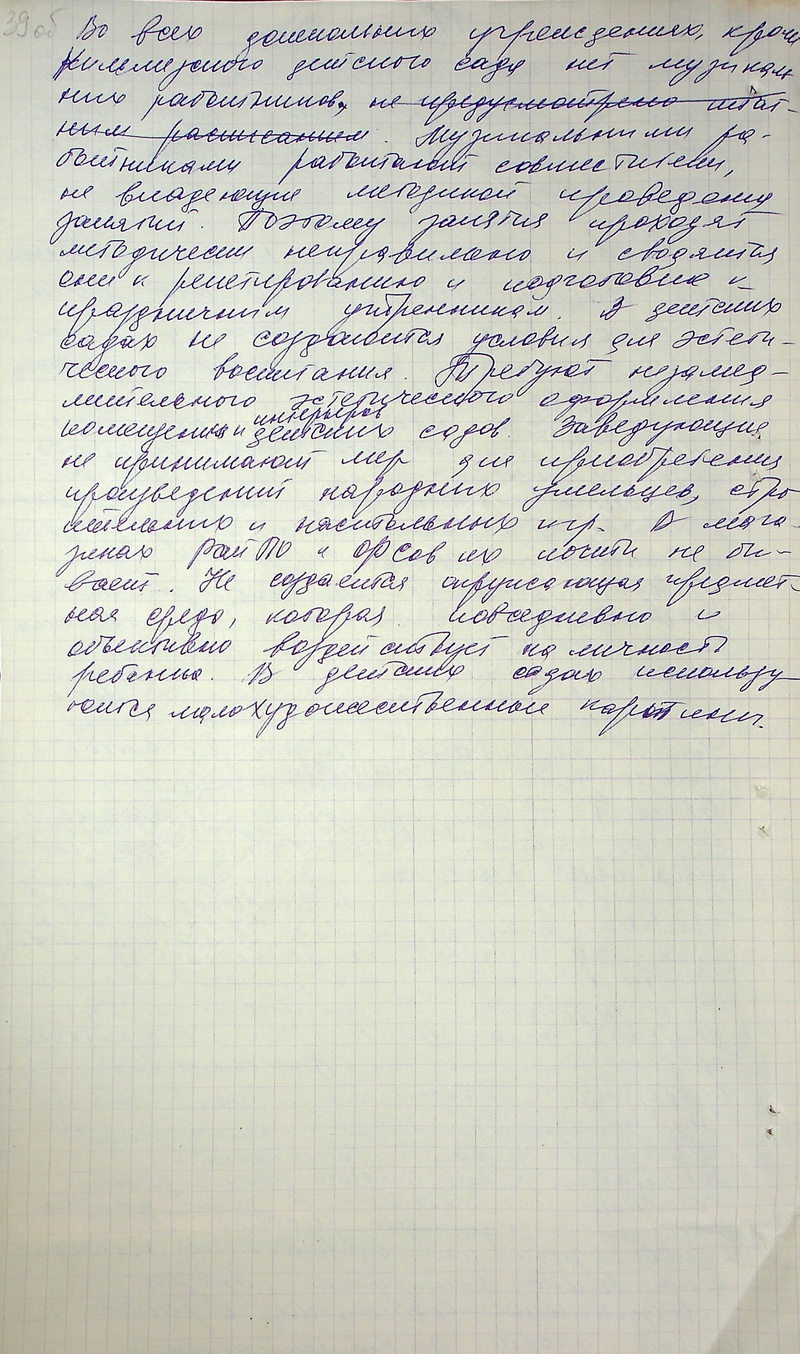 39 об
Во всех дошкольных учреждениях, кроме
Кильмезского детского сада нет музикаль
них работников, не предусмотрено штат-
ным расписанием. Музикальными ра-
ботниками работают совместители,
не владеющие методикой проведения
занятий. Поэтому занятия проходят
методически неправильно и сводятся
они к репетированию и подготовке к
праздничным утренникам. В детских
садах не создаются условия для эстети-
ческого воспитания. Требуют незамед-
лительного эстетического оформления
интерьеров
помещения и детских садов. Заведующие
не принимают мер для приобретения
произведений народных умельцев, стро
ительных и настольных игр. В мага-
зинах РайПО и ОРСов их почти не бы-
вает. Не создается окружающая предмет-
ная среда, которая повседневно и
объективно воздействует на личность
ребенка. В детских садах использу
ются малохудожественные картины.